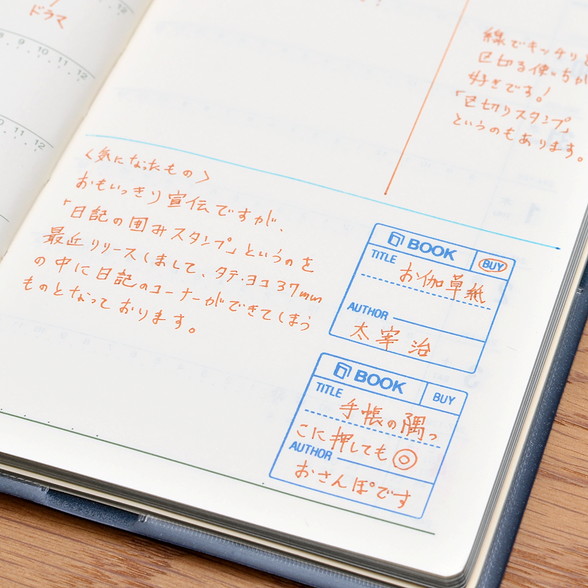 ドラマ
8 9 10 11 12
10 11 12
線でキッチリと
区切る使い方が
好きです!
「区切りスタンプ」
というのもあります。
<気になったもの>
おもいっきり宣伝ですが、
「日記の囲みスタンプ」というのを
最近リリースしまして、タテ・ヨコ37mm
の中に日記のコーナーができてしまう
ものとなっております。
BOOK
BUY
TITLE
お伽草紙
AUTHOR
太宰治
BOOK
BUY
TITLE
手帳の隅っ
こに押しても◎
AUTHOR
おさんぽです